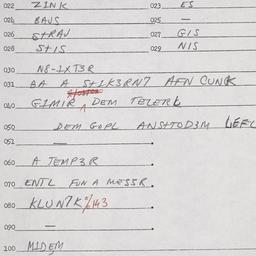 022 ZINK 023 ES
024 BAUS 025 —
026 STRAV 027 GIS
028 STIS 029 NIS
030 N8-1XT3R
031 BA A ST1K3RN7 AFN CUNK
040 GIMIR DEM TELERL
050 DEM GOPL ANSTTOD3M LEFL
051 —
060 A TEMP3R
070 ENTL FUN A MESSR.
080 KLUN7K 143
090 —
100 MIDEM